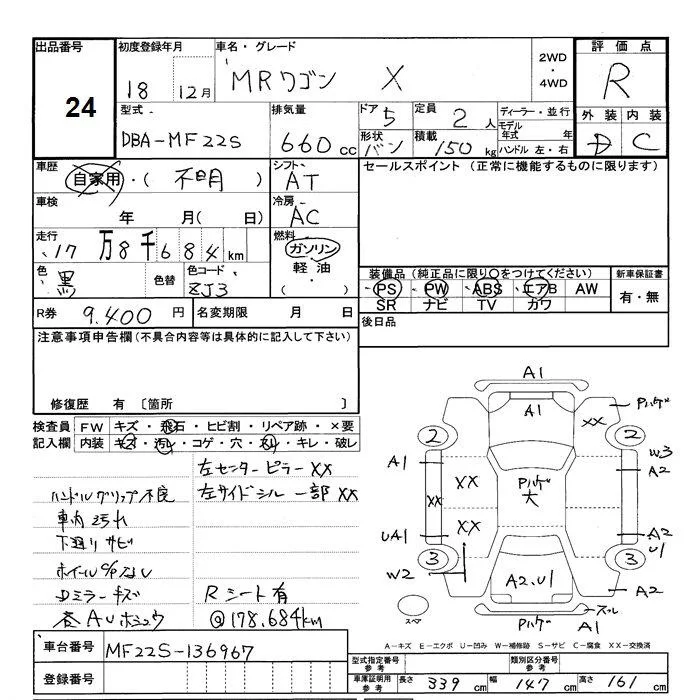 出品番号
24
初度登録年月
18 12月
車名・グレード
MRワゴン X
2WD
・
4WD
評価点
R
型式
DBA-MF22S
排気量
660 cc
ドア 5
形状 バン
定員 2 人
積載 150 kg
ディーラー・並行
モデル年式 年
ハンドル 左・右
外装 内装
D C
車歴
自家用・( 不明 )
シフト
AT
セールスポイント(正常に機能するものに限ります)
車検
年 月( 日)
冷房
AC
走行
17万8千684km
燃料
ガソリン
軽油
( ・ )
色
黒
色替
色コード
ZJ3
装備品(純正品に限り○をつけてください)
PS PW ABS エアB AW
SR ナビ TV カワ
新車保証書
有・無
R券 9,400 円
名変期限 月 日
後日品
注意事項申告欄(不具合内容等は具体的に記入して下さい)
修復歴 有 〔箇所 〕
検査員記入欄
FW キズ・飛石・ヒビ割・リペア跡・×要
内装 キズ・汚れ・コゲ・穴・・キレ・破レ
左センターピラーXX
左サイドシル一部XX
ハンドルグリップ不良
車内汚れ
下廻りサビ
ホイールC/なし
Dミラーキズ
Rシート有
@178,684km
A1
A1
Pハゲ
XX
2
2
A1
W3
A2
XX
Pハゲ
大
XX
XX
UA1
A2
U1
3
3
W2
A2,U1
A2
スペア
Pハゲ
スレ
A1
A-キズ E-エクボ U-凹み W-補修跡 S-サビ C-腐食 XX-交換済
車台番号
MF22S-136967
登録番号
型式指定番号
参考
類別区分番号
参考
車庫証明用
参考
長さ 339 cm 幅 147 cm 高さ 161 cm